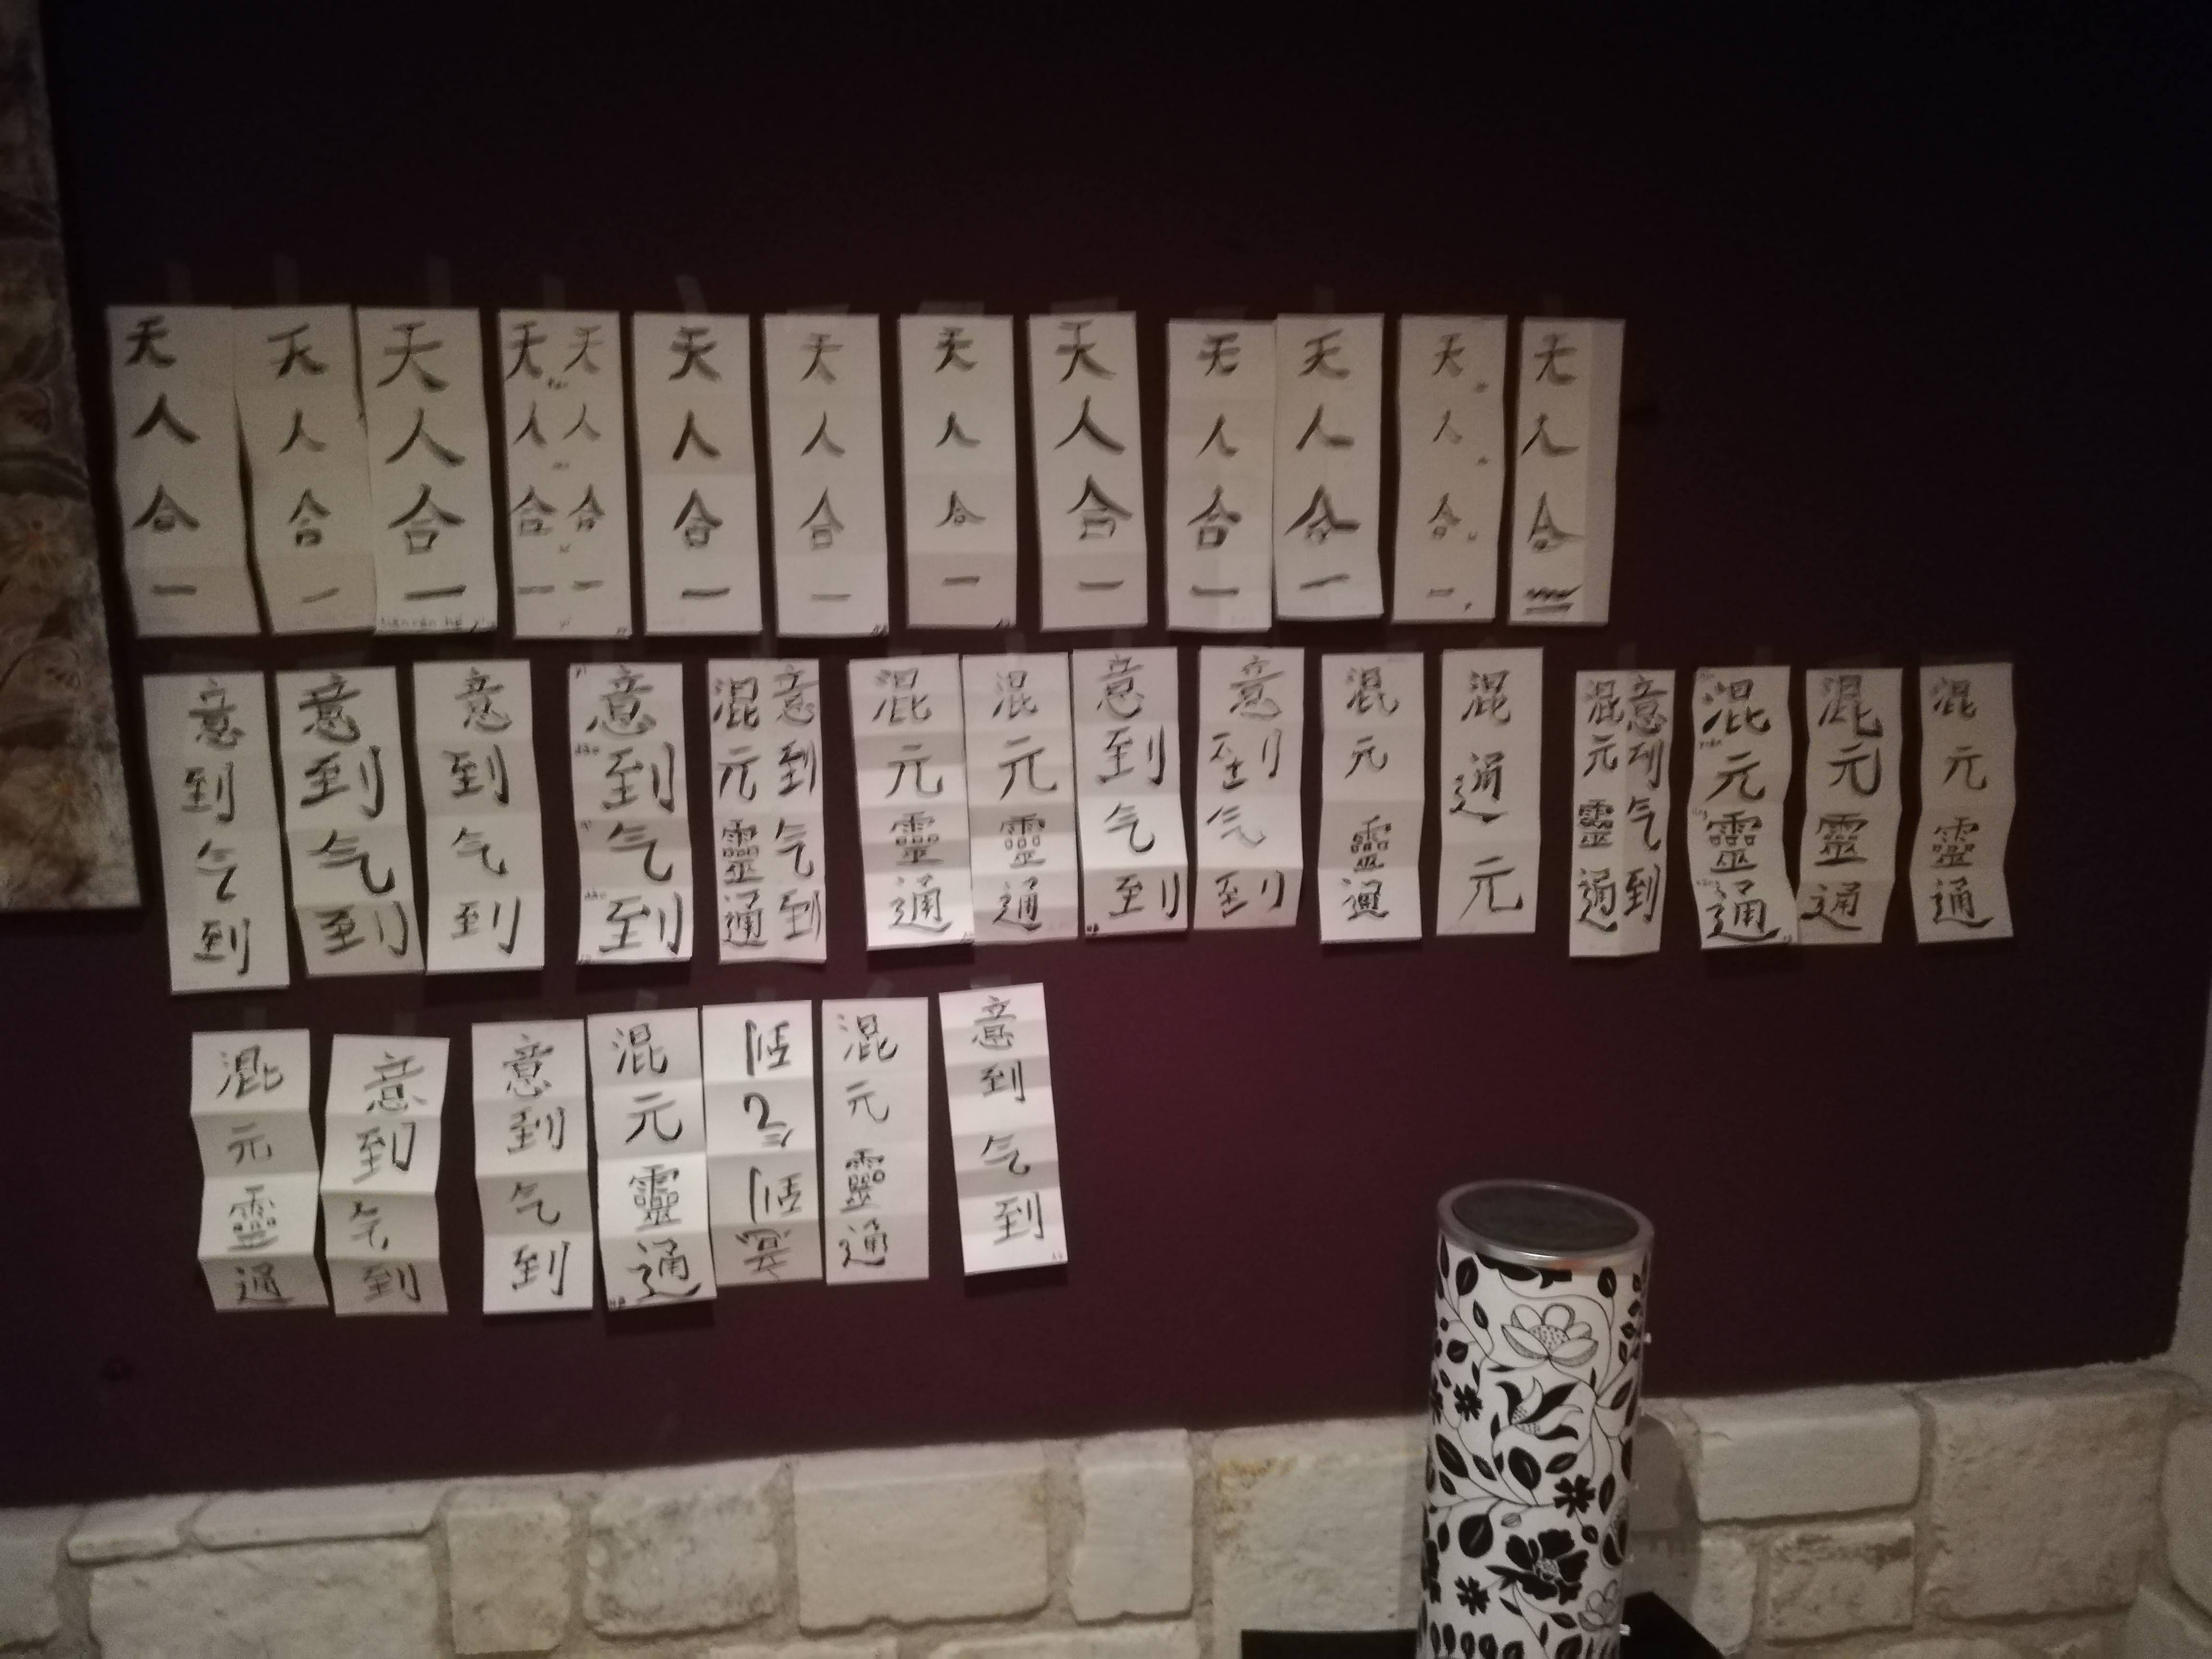 天人合一
天人合一
天人合一
天人合一
天人合一
天人合一
天人合一
天人合一
天人合一
天人合一
天人合一
天人合一
天人合一
意到气到
意到气到
意到气到
意到气到
意到气到
混元靈通
混元靈通
混元靈通
意到气到
意到气到
混元靈通
混通元
意到气到
混元靈通
混元靈通
混元靈通
混元靈通
混元靈通
意到气到
意到气到
混元靈通
混元靈通
意到气到